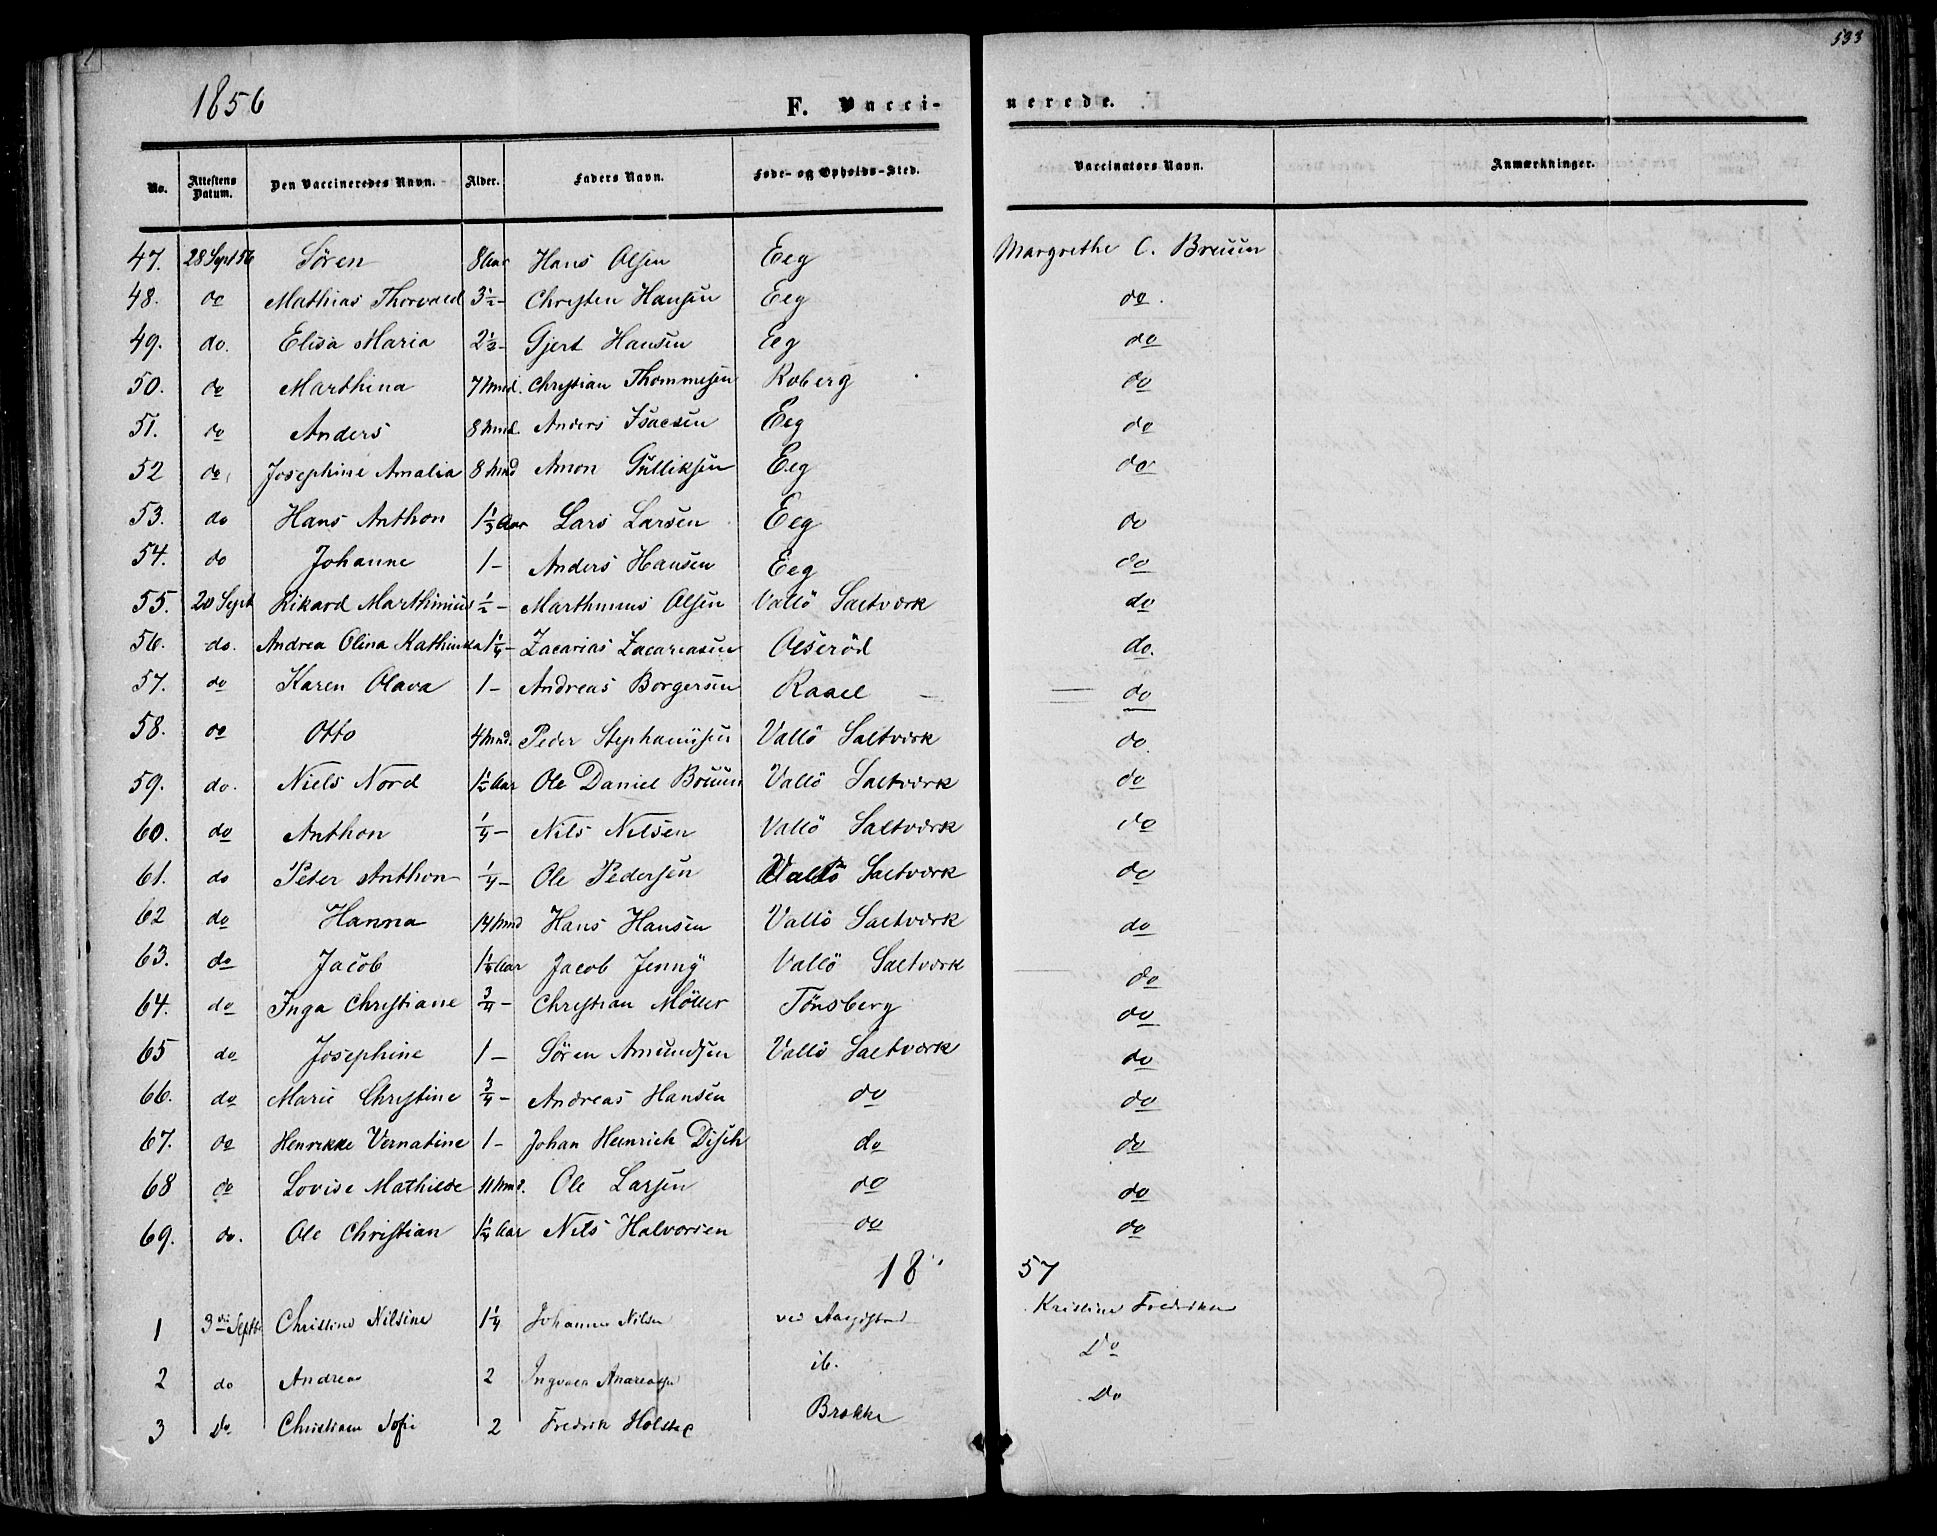 533
1856
F. Vacci- nerede.
No. Attestens Datum. Den Vaccineredes Navn. Alder. Faders Navn. Føde- og Opholds-Sted. Vaccinators Navn. Anmærkninger.
47. 28 Sept 56 Søren 8 Aar Hans Olsen Eeg Margrethe C. Bruun
48. do Mathias Thorvald 3½ - Christen Hansen Eeg do.
49. do. Elisa Maria 2½ - Gjert Hansen Eeg do
50. do Marthina 7 Mnd. Christian Thommesen Roberg do
51. do Anders 8 Mnd. Anders Isacsen Eeg do
52 do Josephine Amalia 8 Mnd Amon Gulliksen Eeg do
53. do Hans Anthon 1⅓ Aar Lars Larsen Eeg do
54. do Johanne 1 - Anders Hansen Eeg do
55. 20 Sept Rikard Marthinius ½ - Marthinius Olsen Vallö Saltværk do
56. do. Andrea Olina Kathinka 1¼ - Zacarias Zacariasen Olserød do.
57. do Karen Olava 1 - Andreas Borgersen Raael - do
58. do Otto 4 Mnd. Peder Stephansen Vallö Saltværk do.
59. do. Niels Nord 1½ Aar Ole Daniel Bruun Vallö Saltværk do
60. do Anthon ¼ - Nils Nilsen Vallö Saltværk do
61. do Peter Anthon ¼ - Ole Pedersen Vallö Saltværk do
62 do Hanna 14 Mnd Hans Hansen Vallö Saltværk do
63. do Jacob 1¼ Aar Jacob Jenny Vallö Saltværk do
64. do Inga Christiane ¾ - Christian Möller Tönsberg do
65 do Josephine 1 - Søren Amundsen Vallö Saltværk do
66. do Marie Christine ¾ - Andreas Hansen do do
67. do Henrikke Vernatine 1 - Johan Heinrich Disch do do
68 do Lovise Mathilde 11 Mnd. Ole Larsen do do
69. do. Ole Christian 1¼ Aar Nils Halvorsen do do
18 57
1 3die Septbr Christine Nilsine 1¼ Johannes Nilsen ved Kristine Fredriksen
2 do Andreas 2 Ingvald Andreassen ib. Do
3 Do Christiane Sofie 2 Fredrik Holst Brekke Do